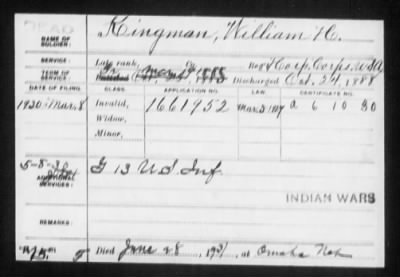 DEAD
NAME OF SOLDIER: Kingman, William H.
SERVICE: Late rank, Reg't Corp. Corps. U.S.A.
TERM OF SERVICE: Enlisted 1885 Discharged Oct. 24, 1888
DATE OF FILING. CLASS. APPLICATION NO. LAW. CERTIFICATE NO.
1930 Mar. 8 Invalid, 1661952 Mar. 3 1927 A 6 10 80
Widow,
Minor,
5-8-30
ADDITIONAL SERVICES: G 13 U.S. Inf.
INDIAN WARS
REMARKS:
Died June 28, 1931, at Omaha Neb